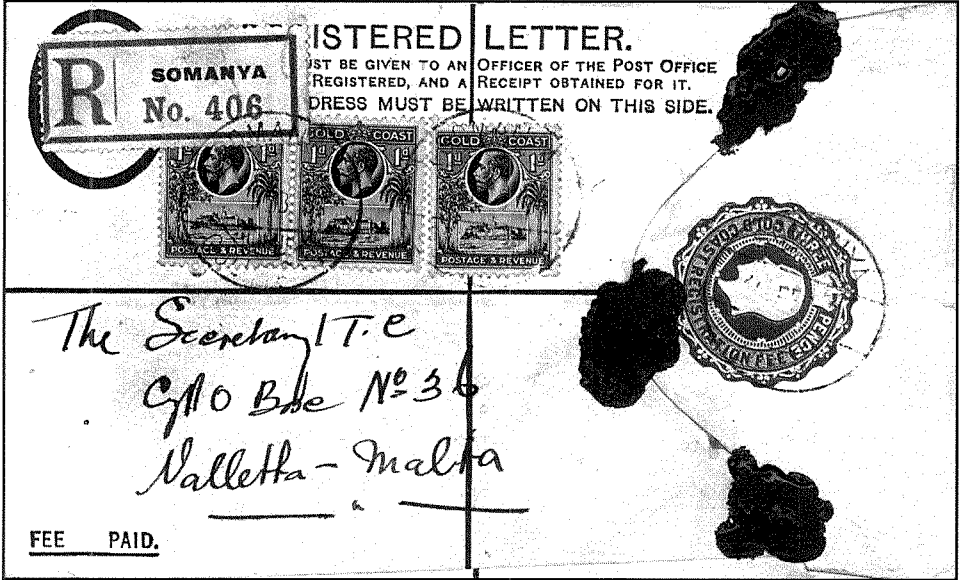 ISTERED LETTER.
UST BE GIVEN TO AN OFFICER OF THE POST OFFICE
REGISTERED, AND A RECEIPT OBTAINED FOR IT.
DRESS MUST BE WRITTEN ON THIS SIDE.
R SOMANYA
No. 406
1d 1d
POSTAGE & REVENUE
GOLD COAST
1d 1d
POSTAGE & REVENUE
GOLD COAST
1d 1d
POSTAGE & REVENUE
GOLD COAST REGISTRATION FEE
THREE PENCE
The Secretary I T. C
GPO Box No 36
Valletta - Malta
FEE PAID.